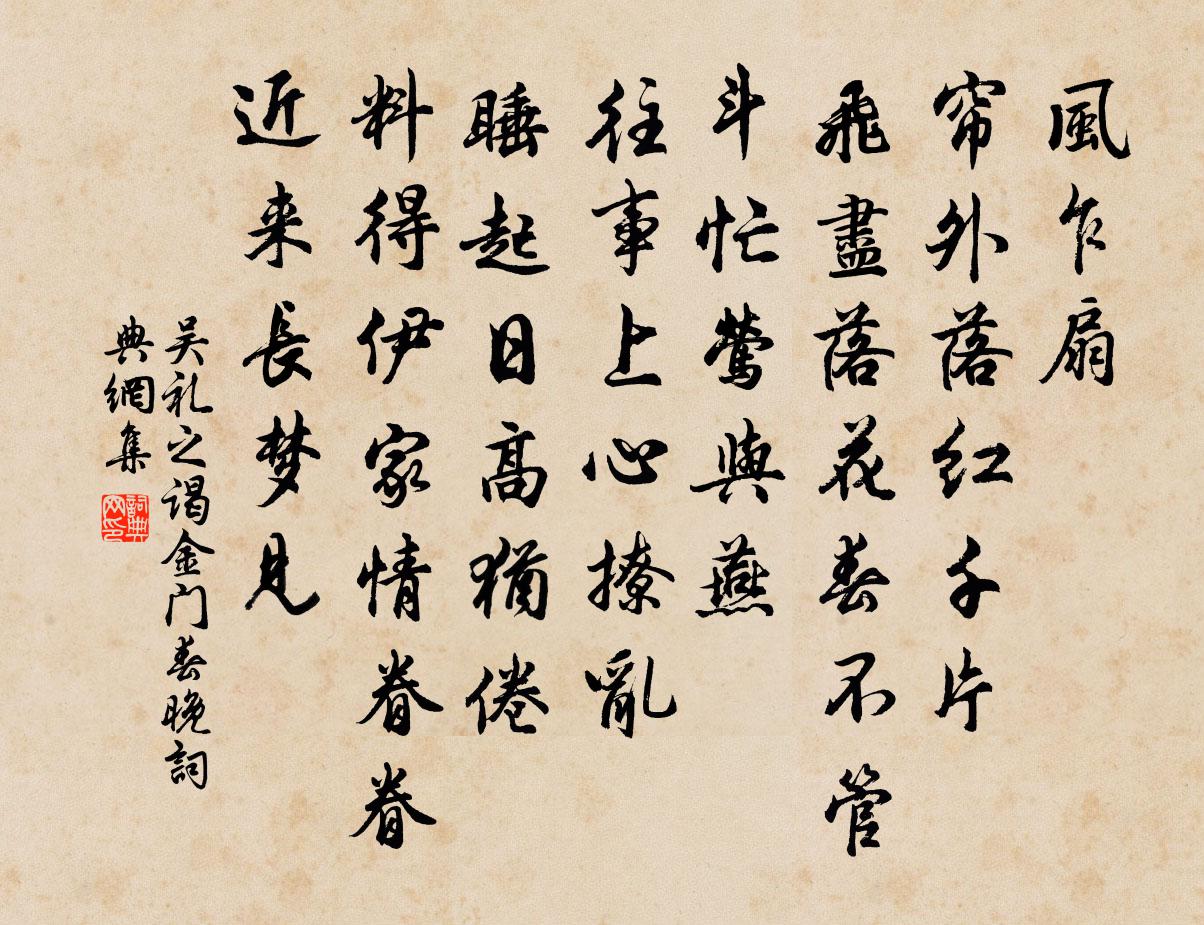 風乍扇
帘外落红千片
飛盡落花春不管
斗忙鶯與燕
往事上心撩亂
睡起日高猶倦
料得伊家情眷眷
近来長梦見
吴礼之谒金门春晚詞
典網集
詞典網印